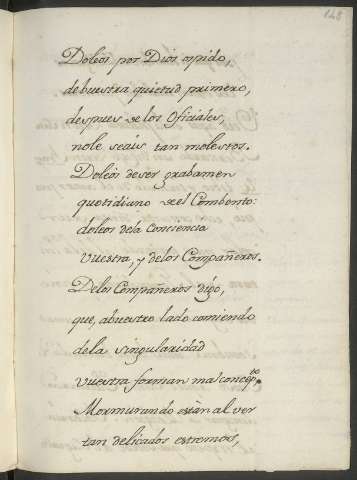 148
Doleós, por Dios ospido,
debuestra quietud primero,
despues de los Oficiales,
nole seais tan molestos.
Doleós deser grabamen
quotidiano del Combento:
doleos dela Conciencia
vuestra, y delos Compañeros.
Delos Compañeros digo,
que, abuestro lado comiendo
dela singularidad
vuestra forman mal concepto.
Mormurando están al ver
tan delicados estremos,